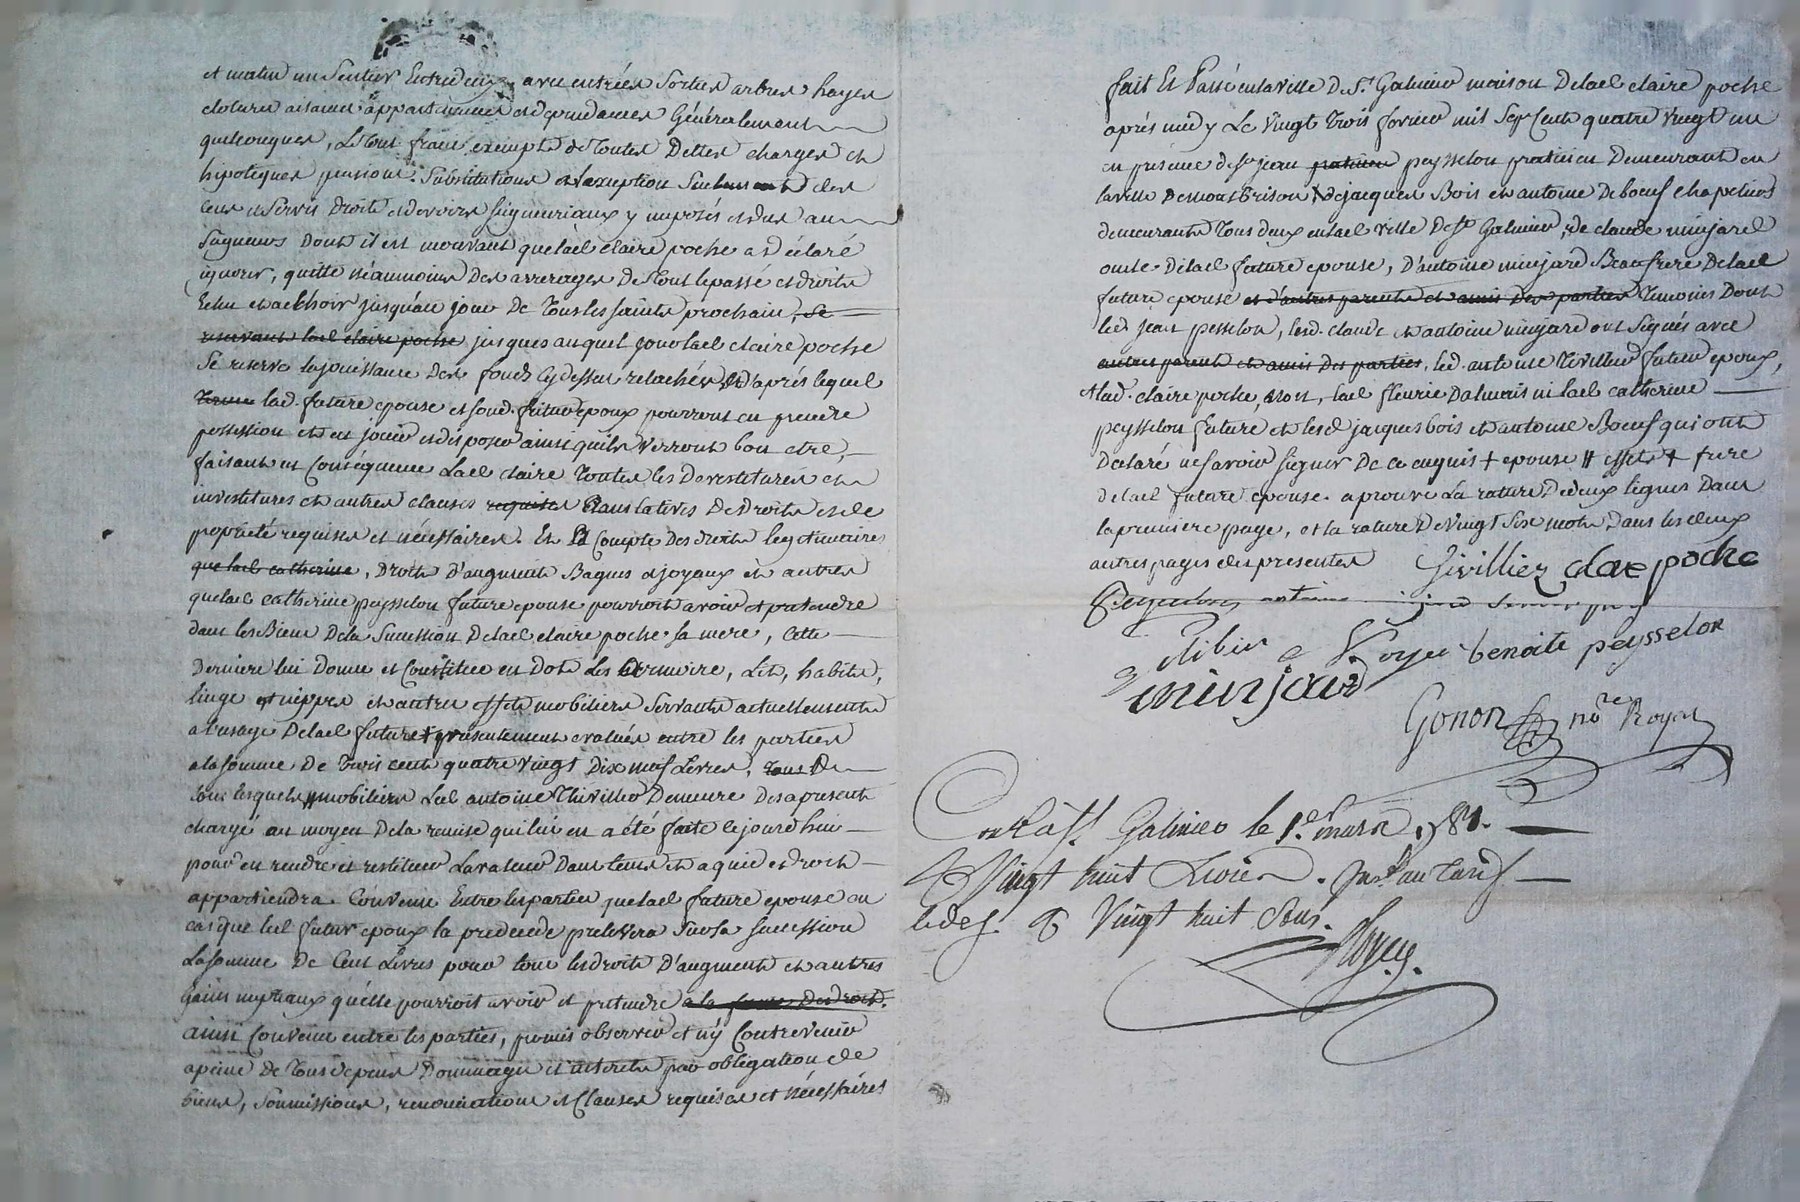 et matin un Sentier Entredeux, avec entrées Sorties arbres hayes
clotures aisances appartenances et dependances Généralement
quelconques, Le tout franc exempt de Toutes Dettes charges et
hipoteques pensions Substitutions et a l'exception Seulement des
cens et Servis Droits et devoirs Seigneuriaux y imposés et dus au
Seigneurs Dont il est mouvant que lad. claire poche a déclaré
ignorer, quitte néanmoins Des arrerages De tout le passé et droits
Echu et a échoir jusqu'au jour De Tous les saints prochain, Se
reservant lad. claire poche jusques auquel jour lad. claire poche
Se reserve la jouissance Des fonds cy dessus relachés, et d'après lequel
Terme lad. future epouse et foud. futur epoux pourront en prendre
possession et en jouir et disposer ainsi qu'ils verront bon etre,
faisant en Conséquence Lad. claire Toutes les Devestitures et
investitures et autres clauses requises Translatives De droits et de
popriété requises et nécessaires. Et à Compte Des droits legitimaires
que lad. catherine, Droits D'augment Bagues et joyaux et autres
que lad. catherine peysselon future epouse pourroit avoir et pretendre
dans les Biens De la Succession De lad. claire poche sa mere, Cette
Derniere lui Donne et Constitue en Dot Les armoire, Lit, habits,
linge et nippes et autres effets mobiliers Servants actuellement
a l'usage De lad. future + presentement evalués entre les parties
a la somme De Trois cent quatre vingt Dix neuf Livres, Tous De
tous lesquels # mobiliers Led. antoine Thivillier Demeure Des apresent
chargé au moyen De la remise qui lui en a été faite cejourd'hui
pour en rendre et restituer La valeur Dans tems et a qui de droit
appartiendra. Convenu Entre les parties que lad. future epouse en
cas que led. futur epoux la predecede prelevera Sur sa succession
La somme De Cent Livres pour tous les droits D'augment et autres
gains nuptiaux qu'elle pourroit avoir et pretendre a la forme Des droits.
ainsi Convenu entre les parties, promis observer et n'y Contrevenir
a peine De Tous depens Dommages et interets par obligation de
biens, Soumissions, renonciations et Clauses requises et nécessaires
fait Et Passé en la ville De St. Galmier maison De lad. claire poche
après midy Le Vingt Trois fevrier mil Sept Cent quatre Vingt un
en presence de Sr. jean praticien peysselon praticien Demeurant en
la ville De montbrison, De jacques Bois et antoine Deboeuf chapeliers
demeurants Tous deux en lad. ville De St. Galmier, de claude minjard
oncle De lad. future epouse, D'antoine minjard Beaufrere De lad.
future epouse et d'autres parents et amis des parties Temoins Dont
led. jean pesselon, lesd. claude et antoine minjard ont Signés avec
autres parents et amis Des parties, led. antoine Tivillier futur epoux,
et lad. claire poche, non, lad. fleurie Dalmais ni lad. catherine
peysselon future et lesd. jacques bois et antoine Boeuf qui ont
Declaré ne savoir signer De ce enquis + epouse # effets + frere
de lad. future epouse. aprouvé La rature De deux lignes Dans
la premiere page, et la rature De Vingt Six mots Dans les deux
autres pages des presentes Tivillier clare poche
Peysselon antoine minjard
Royer benoite peysselon
minjard
Gonon nore Royal
Contlé à St. Galmier le 1er. mars 1781.
R Vingt huit Livres. Insl. au Tarif
ledes. R Vingt huit Sous.
Royer.